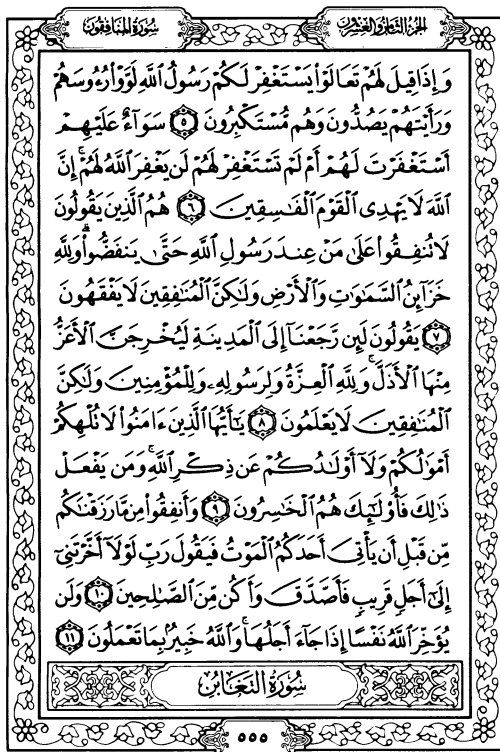 سورة المنافقون
الجزء الثامن والعشرون
وَإِذَا قِيلَ لَهُمْ تَعَالَوْا يَسْتَغْفِرْ لَكُمْ رَسُولُ اللَّهِ لَوَّوْا رُءُوسَهُمْ
وَرَأَيْتَهُمْ يَصُدُّونَ وَهُم مُّسْتَكْبِرُونَ ٥ سَوَاءٌ عَلَيْهِمْ
أَسْتَغْفَرْتَ لَهُمْ أَمْ لَمْ تَسْتَغْفِرْ لَهُمْ لَن يَغْفِرَ اللَّهُ لَهُمْ ۚ إِنَّ
اللَّهَ لَا يَهْدِي الْقَوْمَ الْفَاسِقِينَ ٦ هُمُ الَّذِينَ يَقُولُونَ
لَا تُنفِقُوا عَلَىٰ مَنْ عِندَ رَسُولِ اللَّهِ حَتَّىٰ يَنفَضُّوا ۗ وَلِلَّهِ
خَزَائِنُ السَّمَٰوَٰتِ وَالْأَرْضِ وَلَٰكِنَّ الْمُنَٰفِقِينَ لَا يَفْقَهُونَ
٧ يَقُولُونَ لَئِن رَّجَعْنَا إِلَى الْمَدِينَةِ لَيُخْرِجَنَّ الْأَعَزُّ
مِنْهَا الْأَذَلَّ ۚ وَلِلَّهِ الْعِزَّةُ وَلِرَسُولِهِ وَلِلْمُؤْمِنِينَ وَلَٰكِنَّ
الْمُنَٰفِقِينَ لَا يَعْلَمُونَ ٨ يَٰأَيُّهَا الَّذِينَ ءَامَنُوا لَا تُلْهِكُمْ
أَمْوَٰلُكُمْ وَلَا أَوْلَٰدُكُمْ عَن ذِكْرِ اللَّهِ ۚ وَمَن يَفْعَلْ
ذَٰلِكَ فَأُولَٰئِكَ هُمُ الْخَٰسِرُونَ ٩ وَأَنفِقُوا مِن مَّا رَزَقْنَٰكُم
مِّن قَبْلِ أَن يَأْتِيَ أَحَدَكُمُ الْمَوْتُ فَيَقُولَ رَبِّ لَوْلَا أَخَّرْتَنِي
إِلَىٰ أَجَلٍ قَرِيبٍ فَأَصَّدَّقَ وَأَكُن مِّنَ الصَّٰلِحِينَ ١٠ وَلَن
يُؤَخِّرَ اللَّهُ نَفْسًا إِذَا جَاءَ أَجَلُهَا ۚ وَاللَّهُ خَبِيرٌ بِمَا تَعْمَلُونَ ١١
سُورَةُ التَّغَابُنِ
٥٥٥